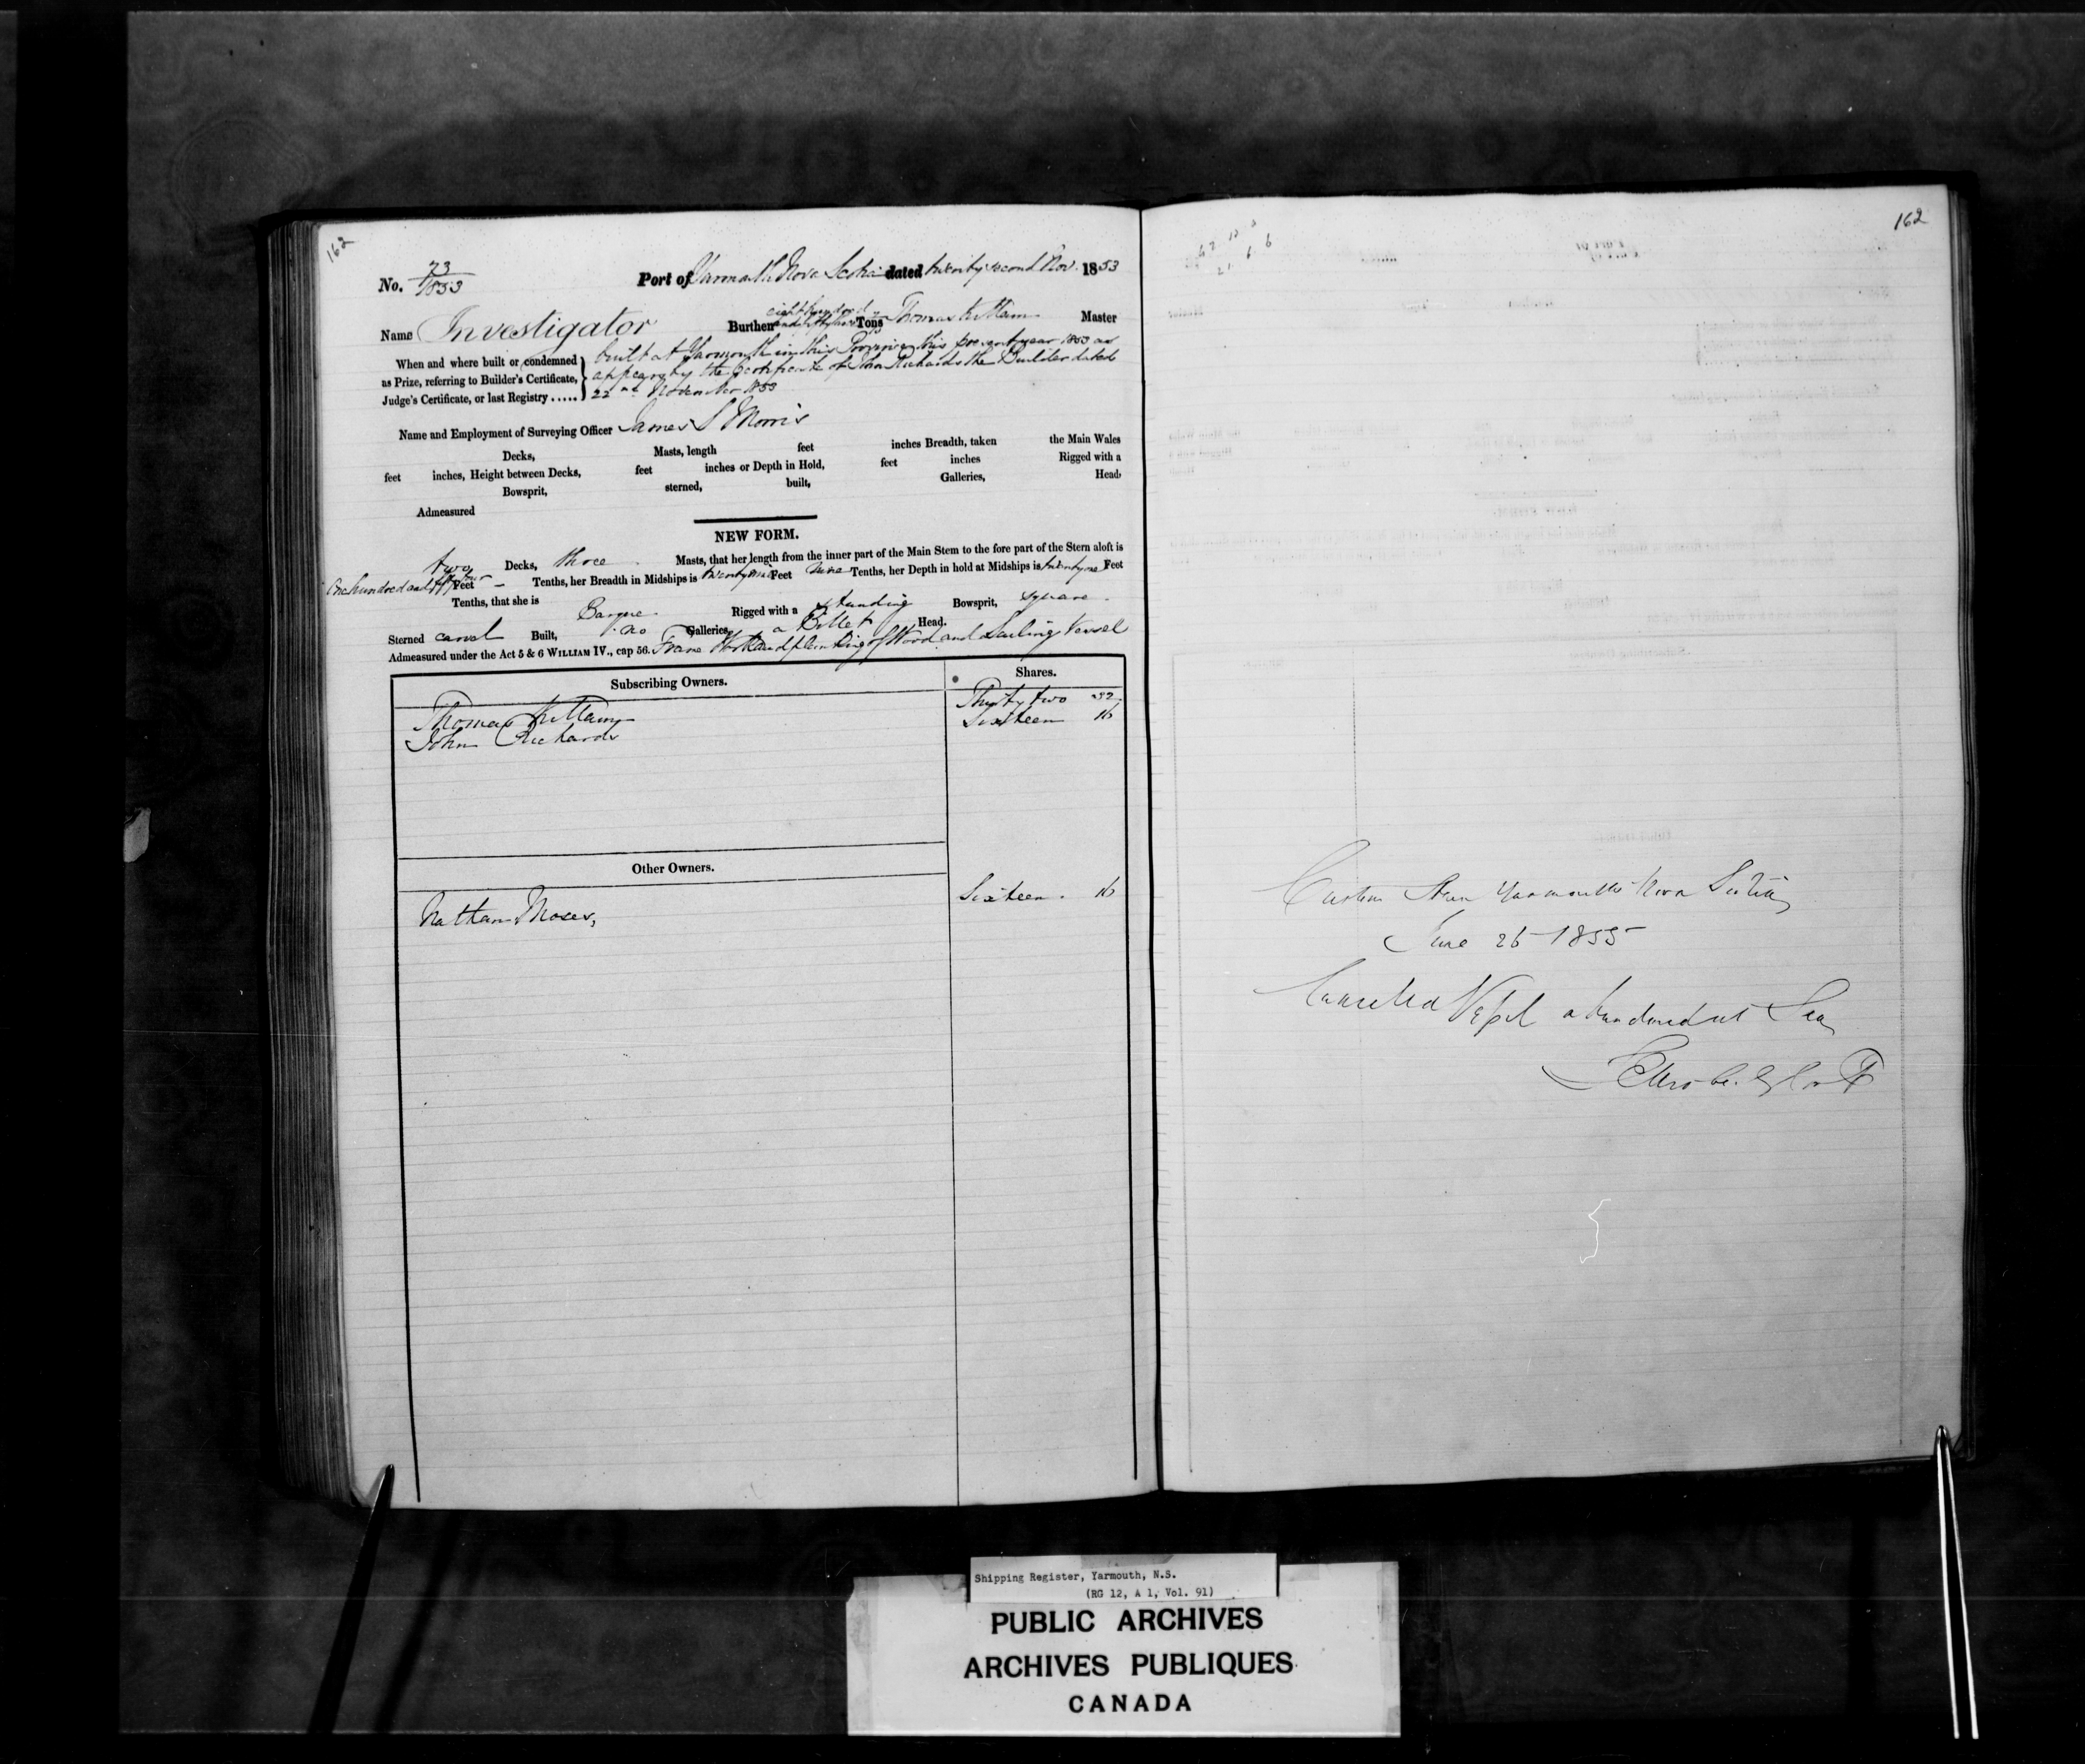 162
No. 73/1853 Port of Yarmouth Nova Scotia dated twenty second Nov. 1853
Name Investigator Burthen eight hundred and fifty Tons Thomas Killam Master
When and where built or condemned as Prize, referring to Builder's Certificate, Judge's Certificate, or last Registry .....
built at Yarmouth in this Province this present year 1853 as
appears by the Certificate of John Richards the Builder dated
22nd November 1853
Name and Employment of Surveying Officer James S Morris
Decks, Masts, length feet inches Breadth, taken the Main Wales
feet inches, Height between Decks, feet inches or Depth in Hold, feet inches Rigged with a
Bowsprit, sterned, built, Galleries, Head,
Admeasured
NEW FORM.
two Decks, three Masts, that her length from the inner part of the Main Stem to the fore part of the Stern aloft is
One hundred and fifty four Feet – Tenths, her Breadth in Midships is twenty nine Feet nine Tenths, her Depth in hold at Midships is twenty one Feet
Tenths, that she is Barque Rigged with a standing Bowsprit, square
Sterned carvel Built, no Galleries, a Billet Head.
Admeasured under the Act 5 & 6 WILLIAM IV., cap 56. Frame Work and planking of Wood and Sailing Vessel
Subscribing Owners. Shares.
Thomas Killam Thirty two 32
John Richards Sixteen 16
Other Owners.
Nathan Moses, Sixteen. 16
162
Custom House Yarmouth Nova Scotia
June 26 1855
Cancelled Vessel abandoned at Sea
Shipping Register, Yarmouth, N.S.
(RG 12, A 1, Vol. 91)
PUBLIC ARCHIVES
ARCHIVES PUBLIQUES
CANADA